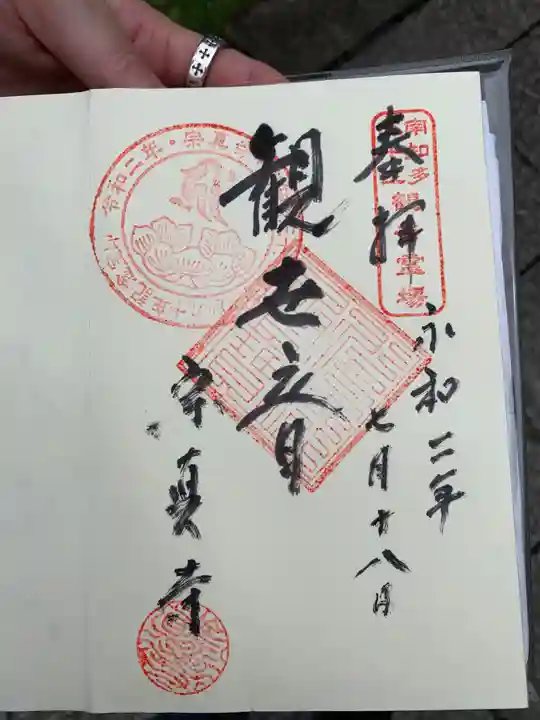 奉拝
令和二年
七月十八日
観世音
宗真寺
南知多
観
霊場
令和二年・宗真寺